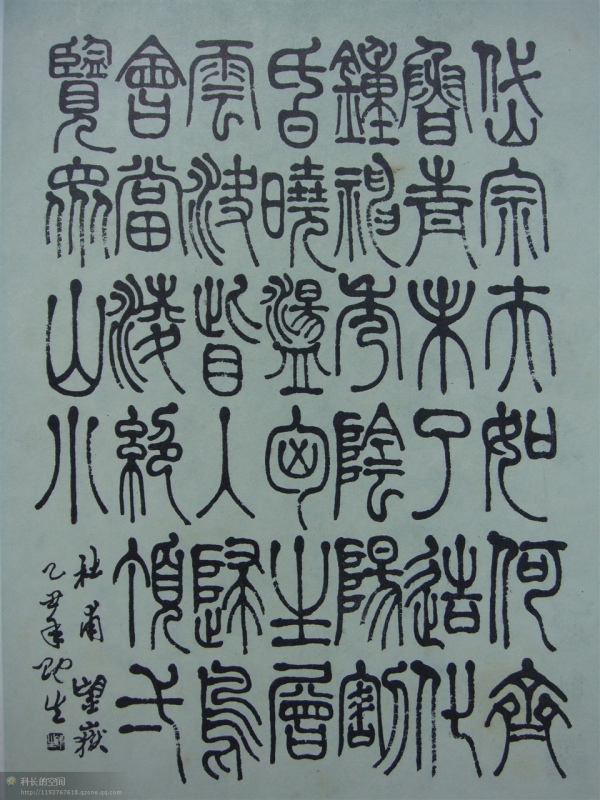 岱宗夫如何齊
魯青未了造化
鍾神秀陰陽割
昏曉盪匈生層
雲決眥入歸鳥
會當凌絕頂弌
覽眾山小
杜甫望嶽
乙丑年
科长的空间
http://1193767618.qzone.qq.com